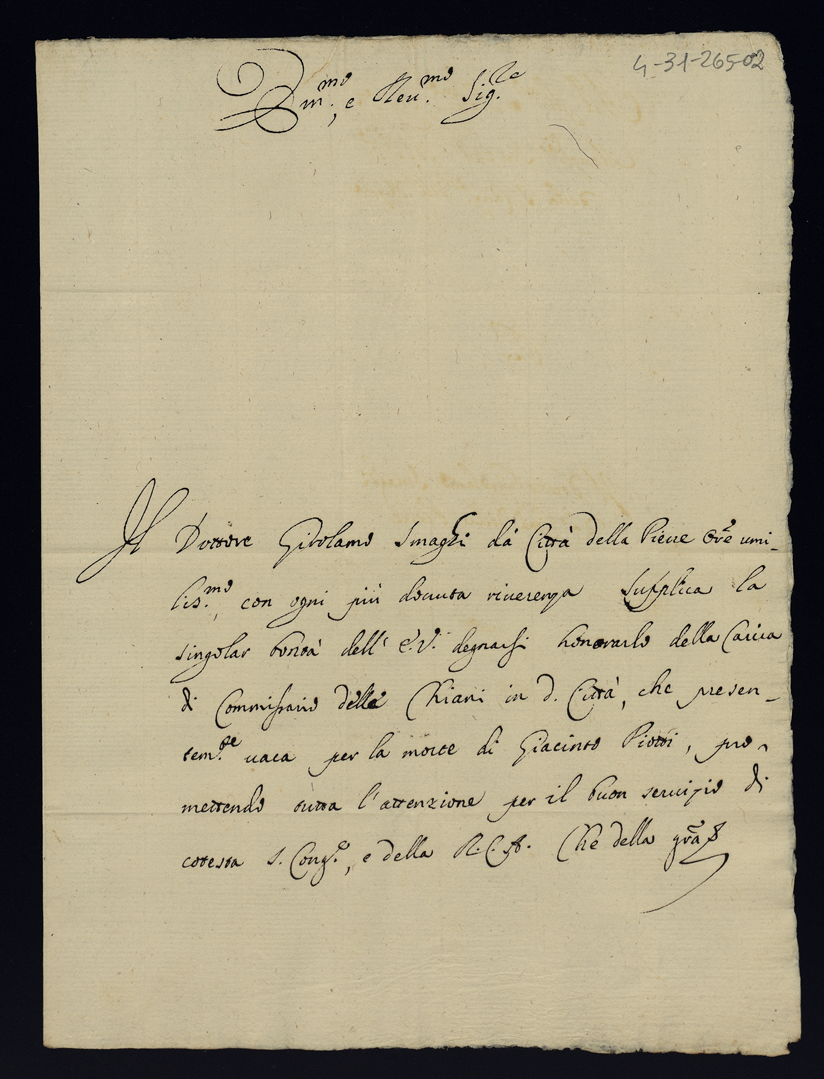 4-31-265-02
Em.mo, e Reu.mo Sig.re
Il Dottore Girolamo Smaghi da Città della Pieue Or̃e umi-
liss.mo, con ogni più douuta riuerenza supplica la
singolar bontà dell' E.V. degnarsi honorarlo della Carica
di Commissario delle Chiani in d. Città, che presen-
tem.te uaca per la morte di Giacinto Piotti, pro-
mettendo tutta l'attenzione per il buon seruizio di
cotesta S. Cong.e, e della R.C.A. Che della gr̃a